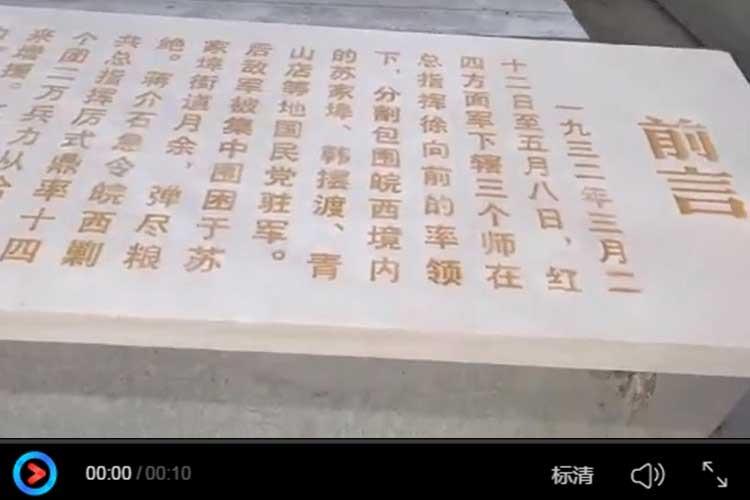 前言
一九三二年三月二
十二日至五月八日，红
四方面军下辖三个师在
总指挥徐向前的率领
下，分割包围皖西境内
的苏家埠、韩摆渡、青
山店等地国民党驻军。
后敌军被集中围困于苏
家埠街道月余，弹尽粮
绝。蒋介石急令皖西剿
共总指挥厉式鼎率十四
个团二万兵力从
增援。
00:00 / 00:10
标清